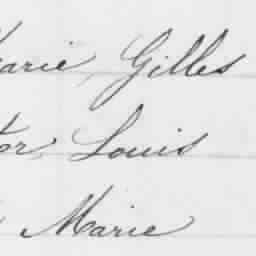 Marie, Gilles
tor, Louis
Marie